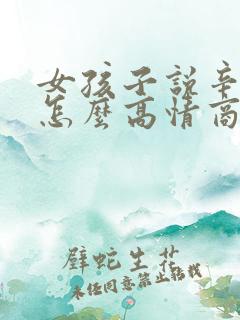 女孩子說辛
怎麼高情商
肆蛇生花
未经同意禁止转载